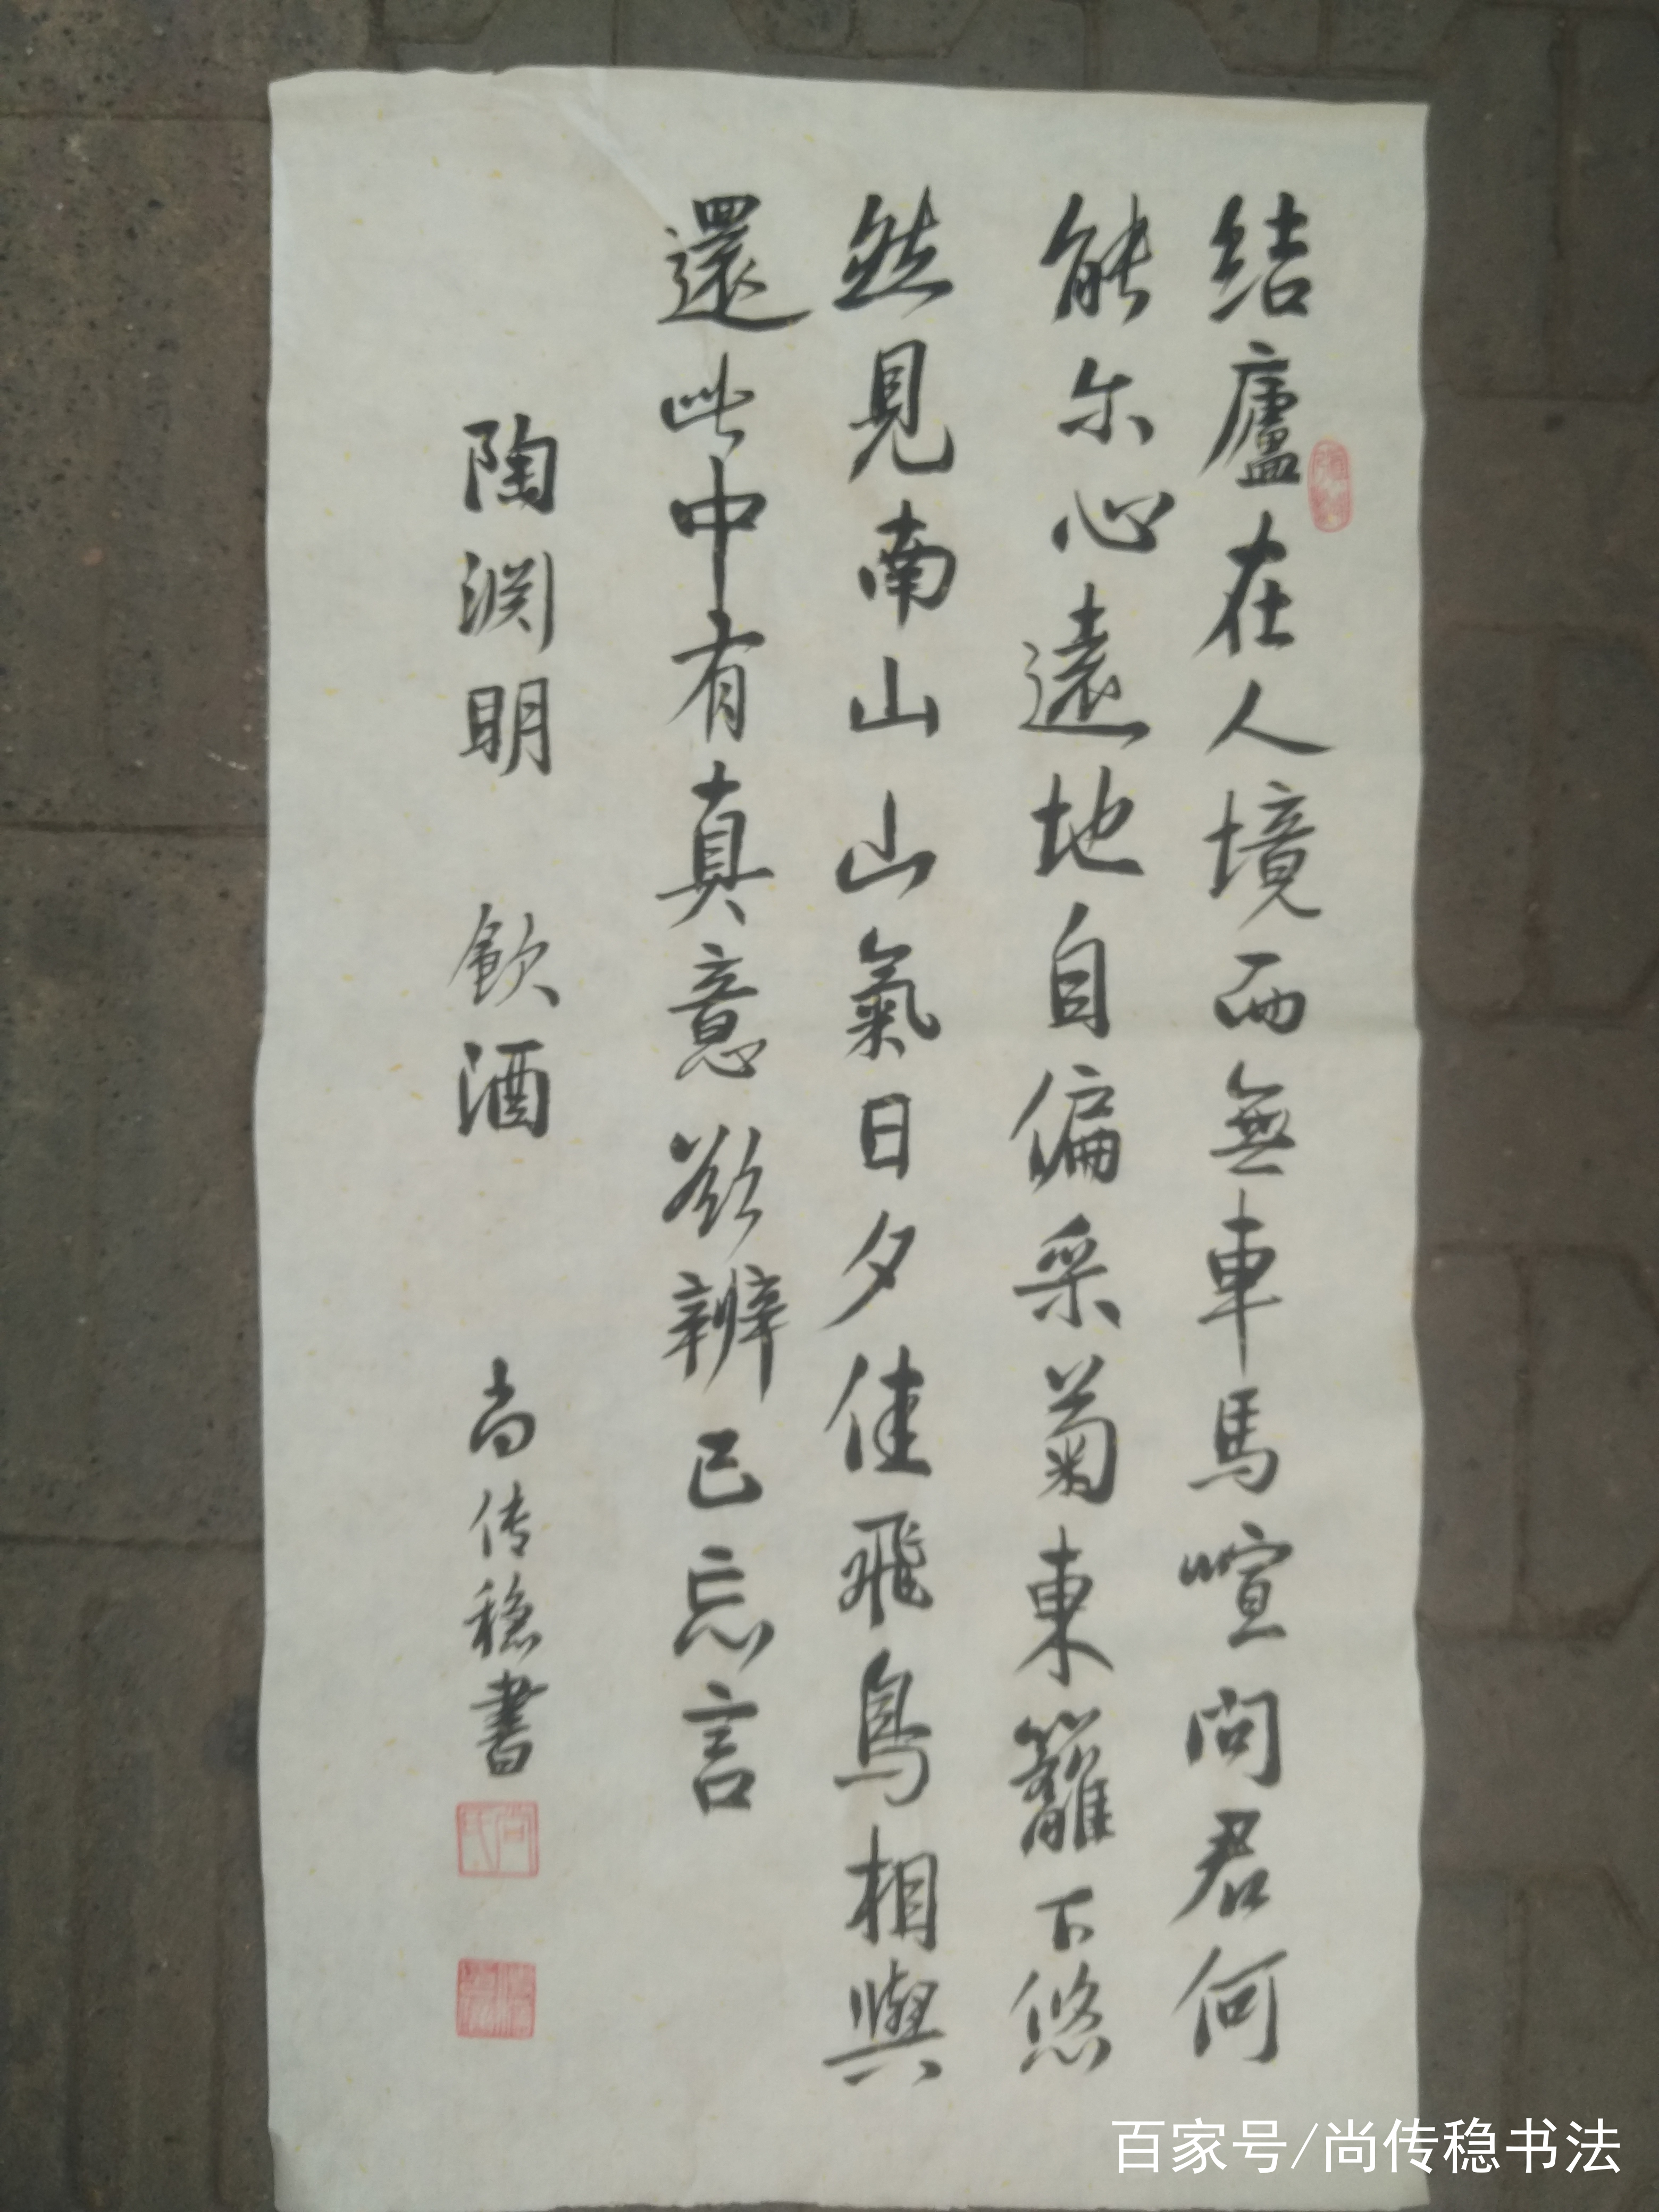 结廬在人境而無車馬喧问君何
能尔心遠地自偏采菊東籬下悠
然見南山山氣日夕佳飛鳥相與
還此中有真意欲辨已忘言
陶渊明 飲酒 尚传稳書
百家号/尚传稳书法